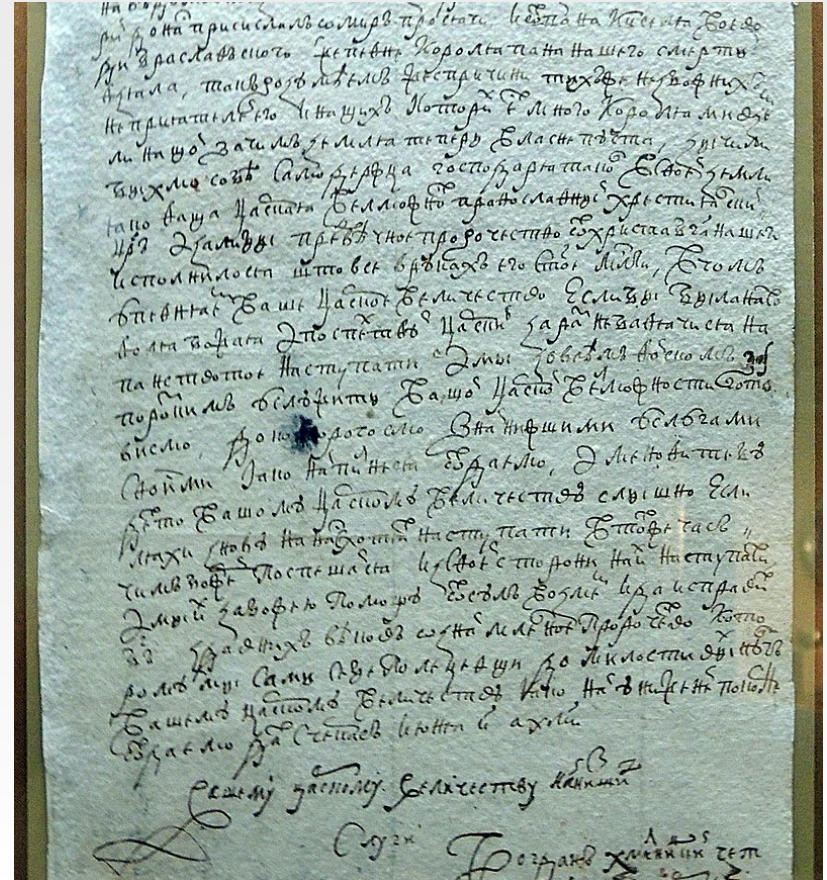 рый до на присилалъ о миръ просячи и от пана Киселя воево
ды браславского же певне короля пана нашого смерть
взяла, такъ розумѣемъ же с причини тыхъ же незбожнихъ
неприятелей его и нащихъ которы е много королями в зе
ми нашой зачимъ земля теперъ власне пуста, зычили
быхмо собѣ самодержца господара такого в своей земли
яко ваша царская велможност православный хрестиянский
царъ азали бы предвѣчное пророчество от христа бга нашего
исполнилося што все в рукахъ его стое млсти, в чомъ
упевняем ваше царское величество если бы была на то
воля божая а поспехъ твой царский зараз не бавячися на
панство тое наступати а мы зо всѣмъ войскомъ за
порозкимъ услужить вашой царской велможности готов
висмо, до которогосмо з найнижшими услугами
своими яко найпилне ся отдаемо, а меновите будет
то вашомъ царскомъ величествѣ слышно если
ляхи знову на нас хотят наступати в тот же час
чимъ боржей поспешайся и з своее стороны на их наступати
а мы их за божею помощу отсул возмем и да исправит
бг з давных вѣков ознаймленное пророчество кото
ромъ мы сами себе полецевши до милостивых ногъ
вашемъ царскомъ величествѣ яко найнижей покорне
отдаемо дат с черкас июня и ахми
вашему царскому величеству найнижши
слуги
Богданъ хмелницкий гетм